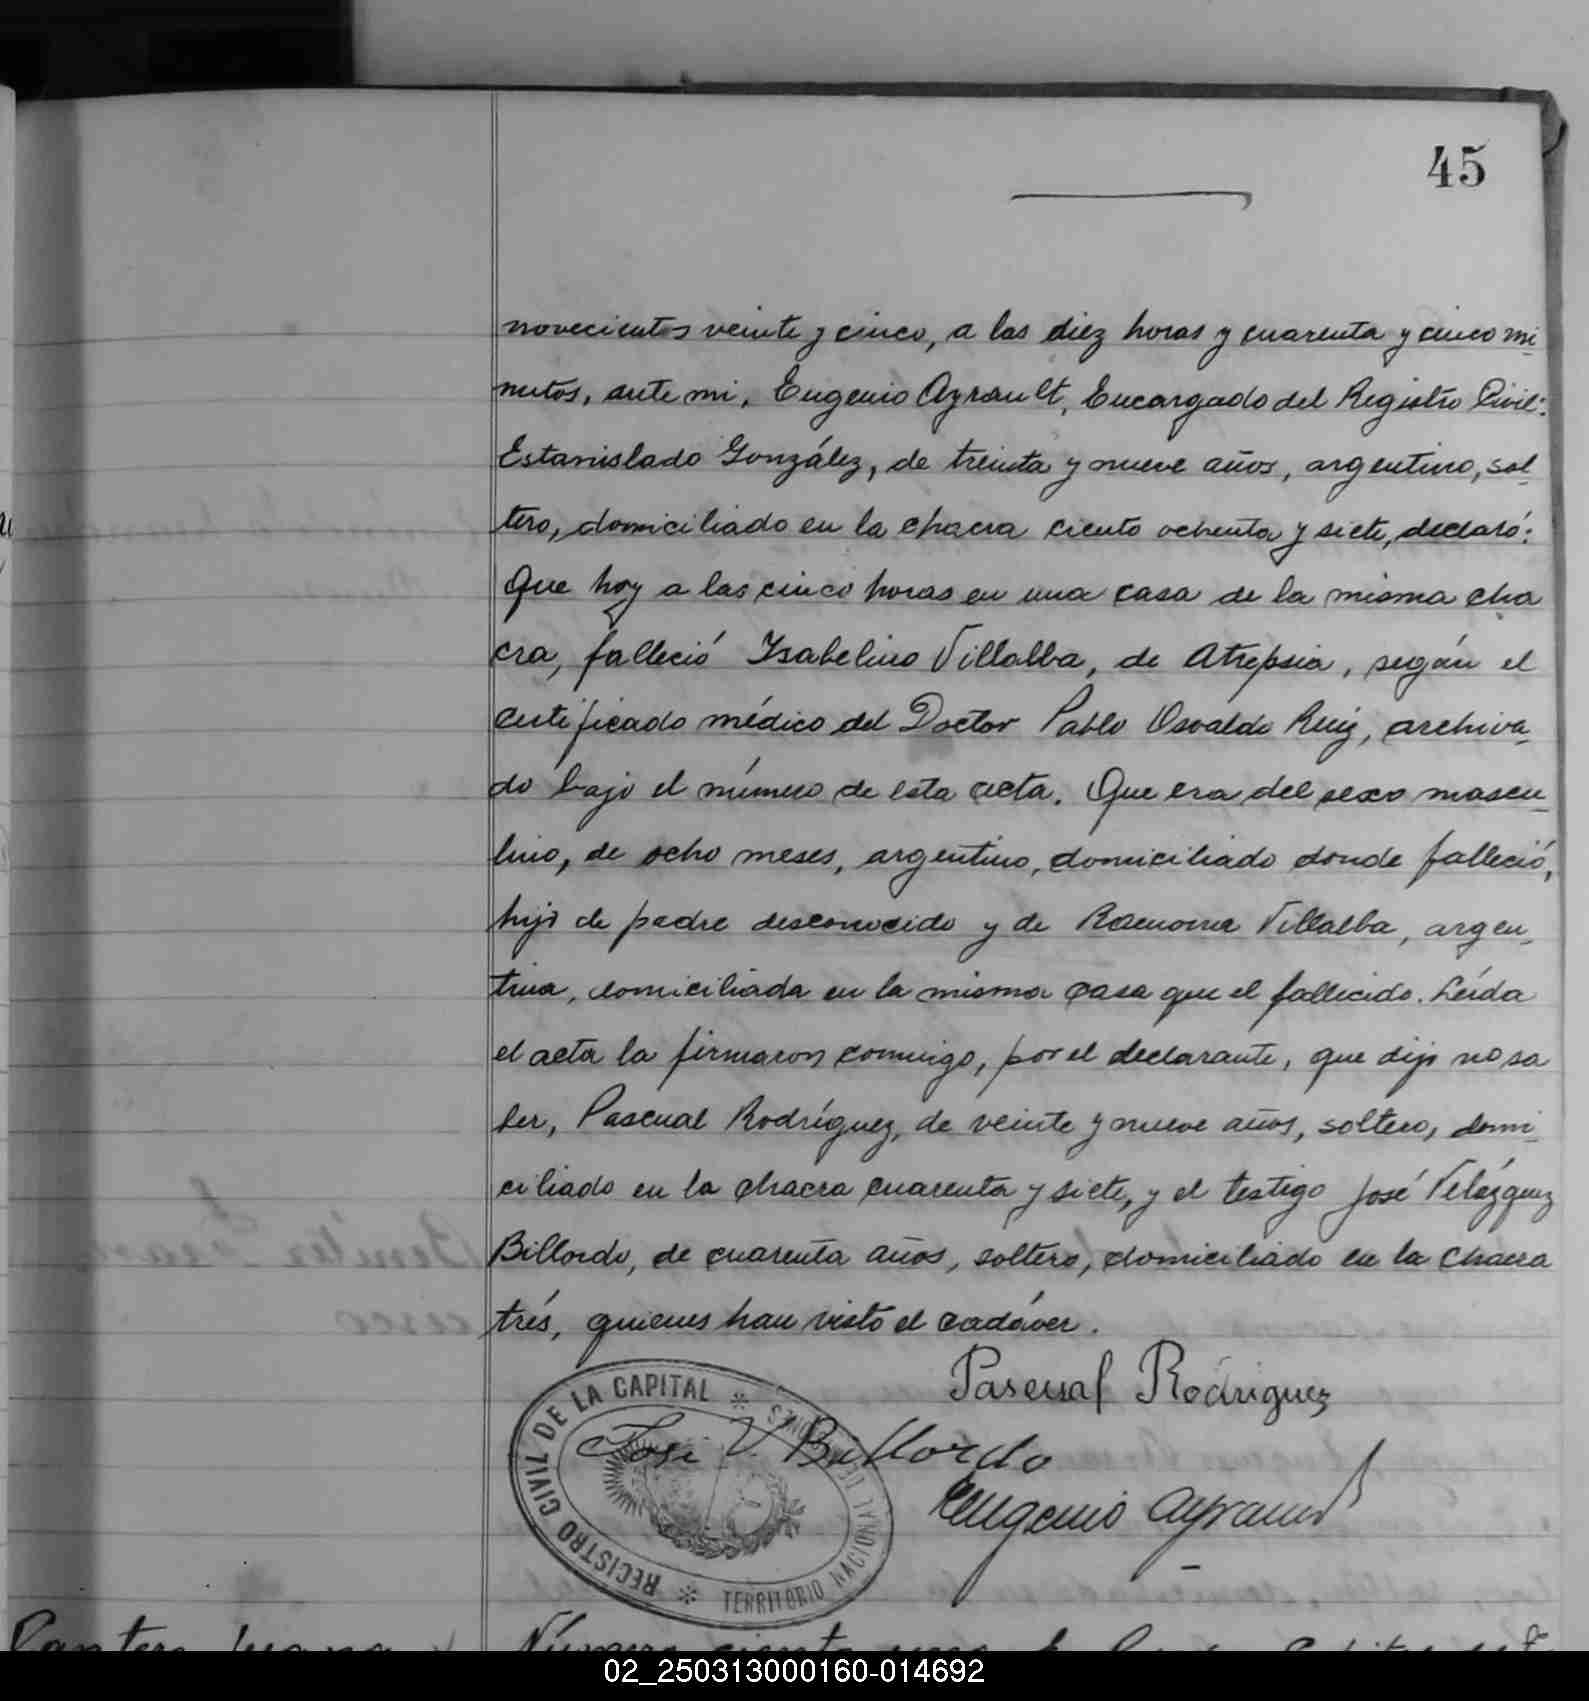 45
novecientos veinte y cinco, a las diez horas y cuarenta y cinco mi-
nutos, ante mi, Eugenio Ayrault, Encargado del Registro Civil:
Estanislado González, de treinta y nueve años, argentino, sol-
tero, domiciliado en la chacra ciento ochenta y siete, declaró:
Que hoy a las cinco horas en una casa de la misma cha
cra, falleció Ysabelino Villalba, de Atrepsia, según el
certificado médico del Doctor Pablo Osvaldo Ruiz, archiva-
do bajo el número de esta acta. Que era del sexo mascu-
lino, de ocho meses, argentino, domiciliado donde falleció,
hijo de padre desconocido y de Ramona Villalba, argen-
tina, domiciliada en la misma casa que el fallecido. Leída
el acta la firmaron conmigo, por el declarante, que dijo no sa
ber, Pascual Rodríguez, de veinte y nueve años, soltero, domi-
ciliado en la chacra cuarenta y siete, y el testigo José Velázquez
Billordo, de cuarenta años, soltero, domiciliado en la chacra
trés, quienes han visto el cadáver.
Pascual Rodriguez
José V Billordo
Eugenio Ayrault
REGISTRO CIVIL DE LA CAPITAL * TERRITORIO NACIONAL DE MISIONES *
Número ciento once
02_250313000160-014692